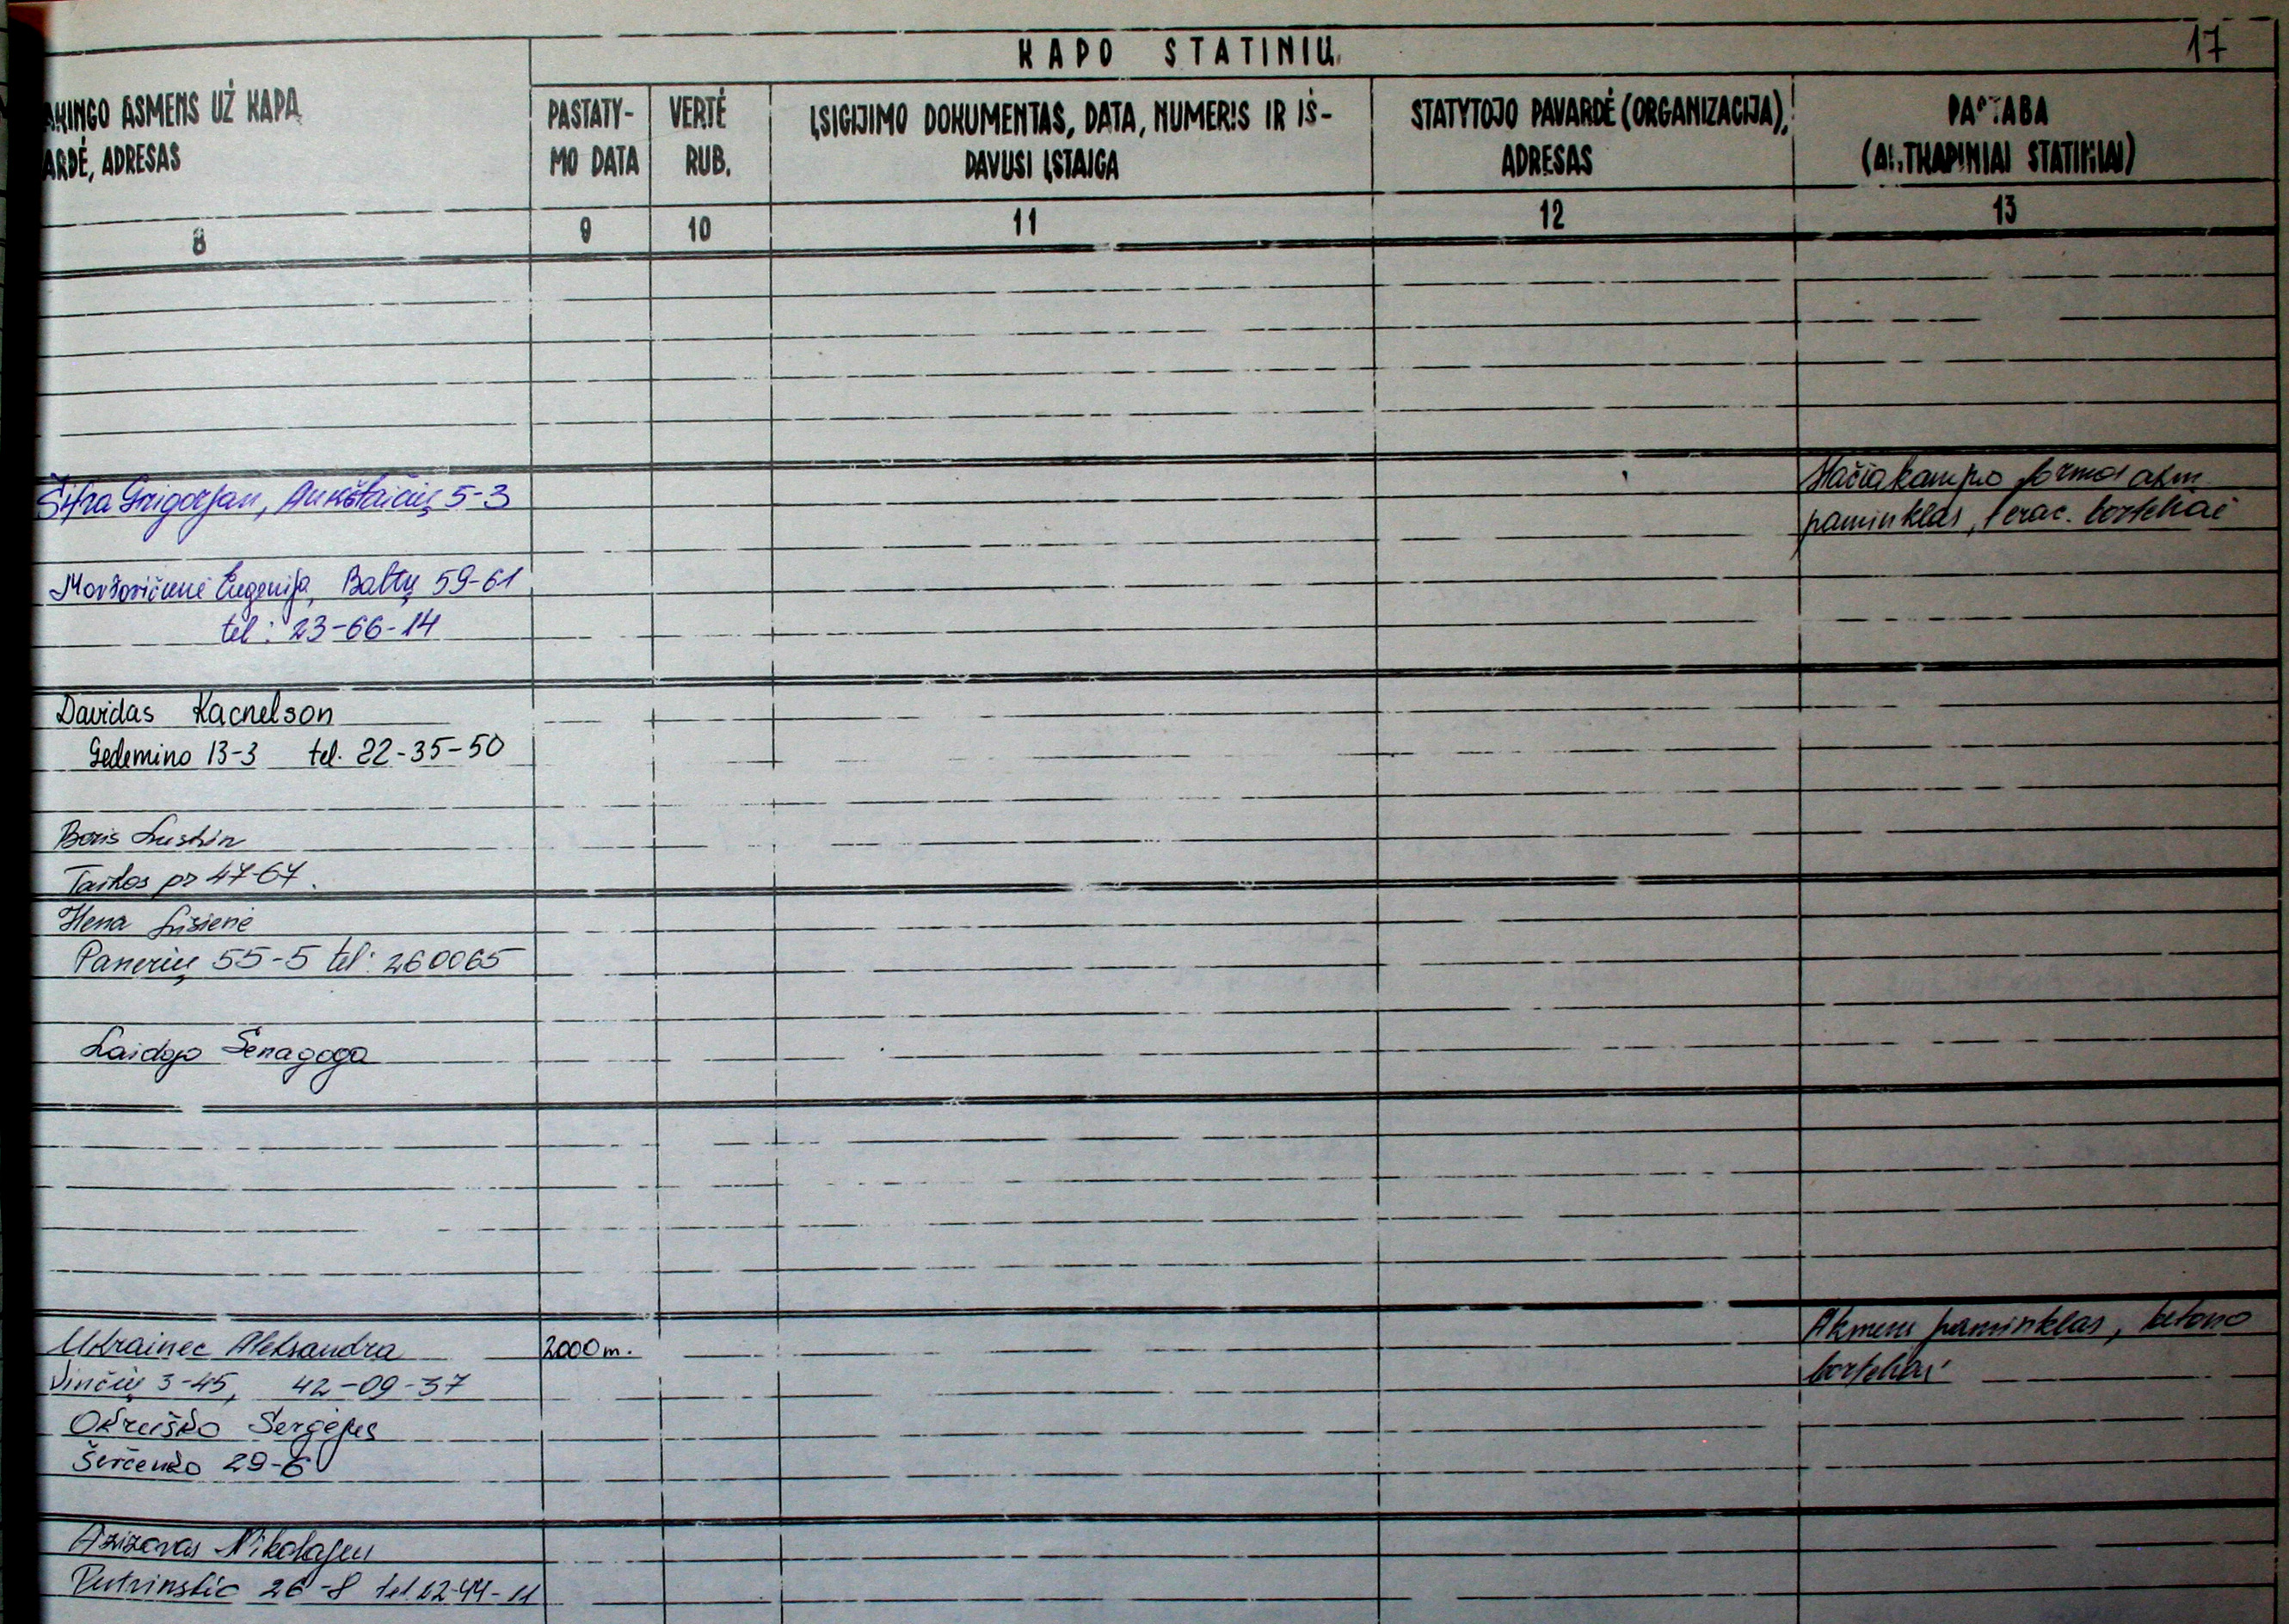 KAPO STATINIŲ
17
AKINGO ASMENS UŽ KAPĄ
ARDĖ, ADRESAS
PASTATY-
MO DATA
VERTĖ
RUB.
ĮSIGIJIMO DOKUMENTAS, DATA, NUMERIS IR IŠ-
DAVUSI ĮSTAIGA
STATYTOJO PAVARDĖ (ORGANIZACIJA),
ADRESAS
PASTABA
(ANTKAPINIAI STATINIAI)
8
9
10
11
12
13
Šifra Grigorjan, Aukštaičių 5-3
Stačiakampio formos akm.
paminklas, terac. borteliai
Movšovičienė Eugenija, Baltų 59-61
tel: 23-66-14
Davidas Kacnelson
Gedemino 13-3 tel. 22-35-50
Boris
Taikos pr 47-67.
Hena
Panerių 55-5 tel: 260065
Laidojo Senagoga
Ukrainec Aleksandra
2000 m.
Akmens paminklas, betono
borteliai
Vinčių 3-45, 42-09-37
Okruško Sergėjus
Ševčenko 29-6
Azizovas Nikolajus
26-8 tel. 22-44-11